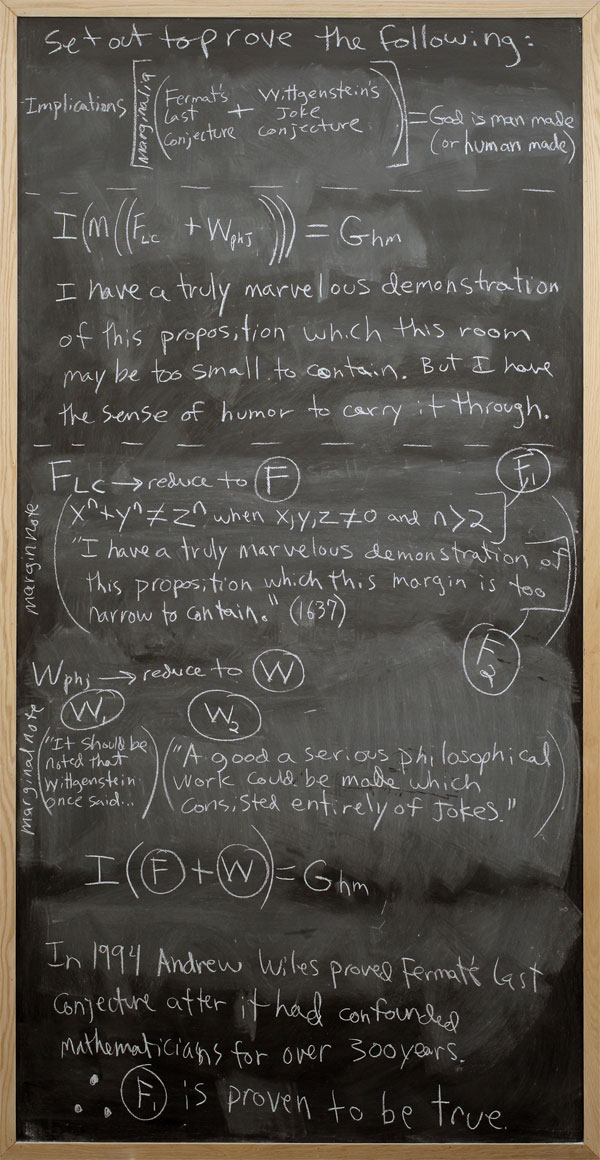 Set out to prove the following:
Implications [Marginalia ((Fermat's Last Conjecture + Wittgenstein's Joke conjecture))] = God is man made (or human made)
I(M((F_LC + W_phj))) = G_hm
I have a truly marvelous demonstration
of this proposition which this room
may be too small to contain. But I have
the sense of humor to carry it through.
F_LC → reduce to F
F1
margin note
x^n + y^n ≠ z^n when x,y,z ≠ 0 and n > 2
"I have a truly marvelous demonstration of
this proposition which this margin is too
narrow to contain." (1637)
F2
W_phj → reduce to W
W1
W2
marginal note
"It should be
noted that
Wittgenstein
once said...
"A good a serious philosophical
work could be made which
consisted entirely of jokes."
I(F + W) = G_hm
In 1994 Andrew Wiles proved Fermat's Last
Conjecture after it had confounded
mathematicians for over 300 years.
∴ F1 is proven to be true.